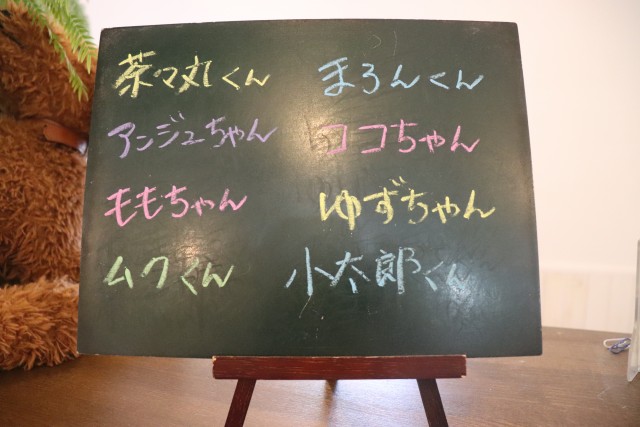 茶々丸くん
まろんくん
アンジュちゃん
ココちゃん
ももちゃん
ゆずちゃん
ムクくん
小太郎くん